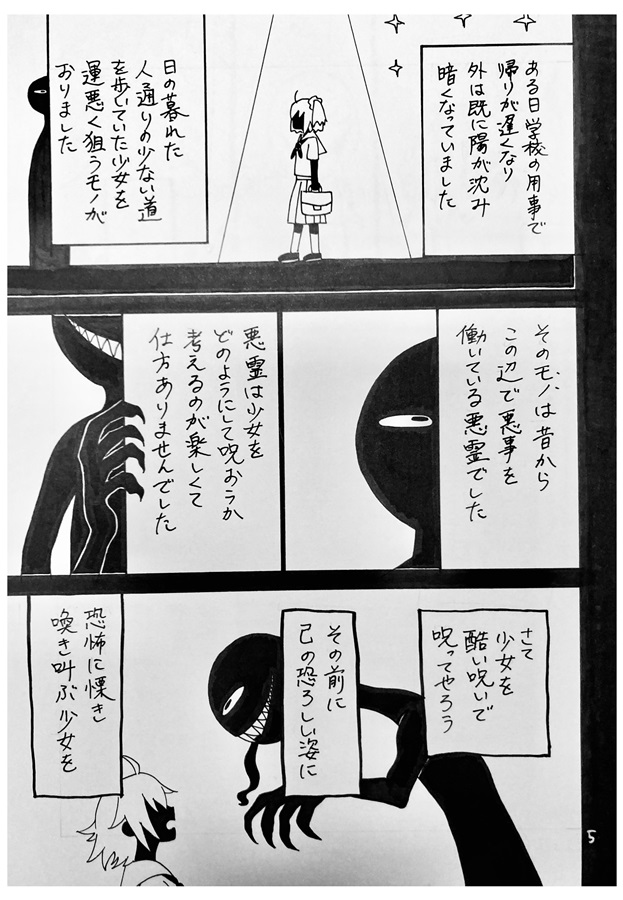 ある日学校の用事で
帰りが遅くなり
外は既に陽が沈み
暗くなっていました
日の暮れた
人通りの少ない道
を歩いていた少女を
運悪く狙うモノが
おりました
そのモノは昔から
この辺で悪事を
働いている悪霊でした
悪霊は少女を
どのようにして呪おうか
考えるのが楽しくて
仕方ありませんでした
さて
少女を
酷い呪いで
呪ってやろう
その前に
己の恐ろしい姿に
恐怖に慄き
喚き叫ぶ少女を
5